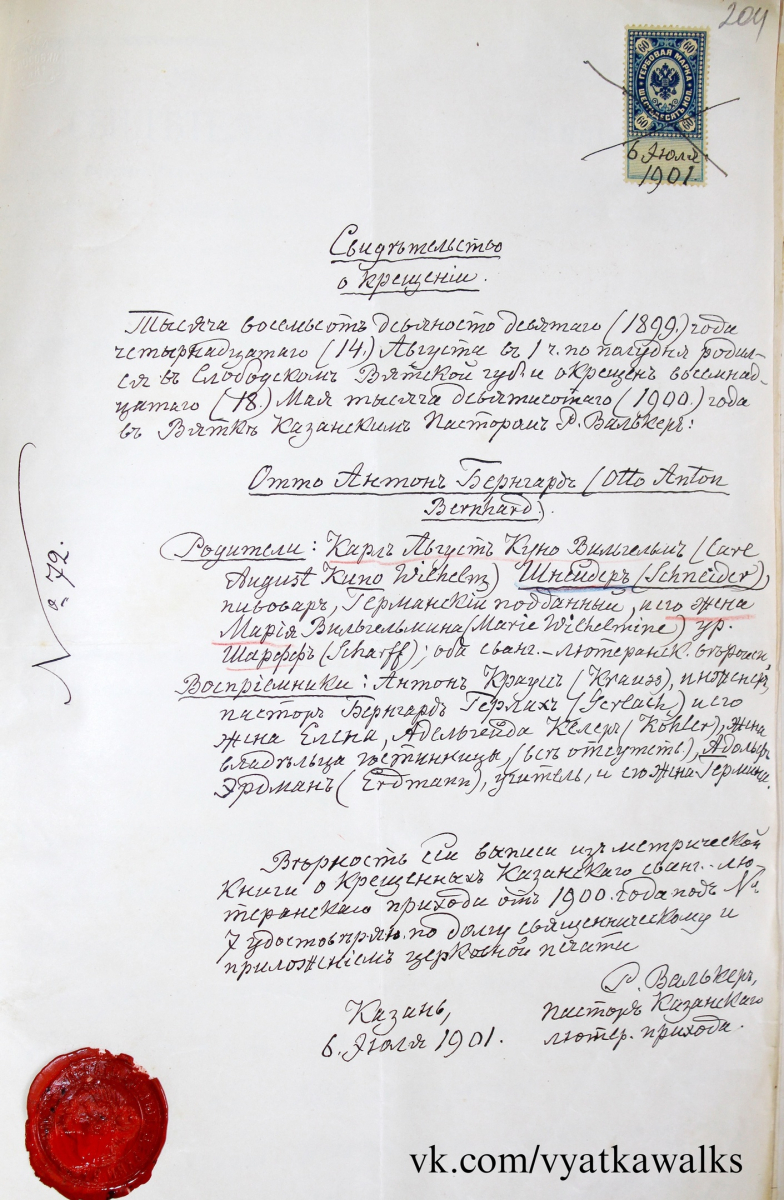 204
60 60
ГЕРБОВАЯ МАРКА
ШЕСТЬДЕСЯТЪ КОП.
60 60
6 Июля
1901.
Свидѣтельство
о крещенiи.
Тысяча восемьсотъ девяносто девятаго (1899.) года
четырнадцатаго (14.) Августа въ 1 ч. по полудня родил-
ся въ Слободскомъ Вятской губ. и окрещенъ восемнад-
цатаго (18.) Мая тысяча девятисотаго (1900.) года
въ Вяткѣ Казанскимъ Пасторомъ Р. Валькеръ:
Отто Антонъ Бернгардъ (Otto Anton
Bernhard).
Родители: Карлъ Августъ Куно Вильгельмъ (Carl
August Kuno Wilhelm) Шнейдеръ (Schneider),
пивоваръ, Германскiй подданный, и его жена
Марiя Вильгельмина (Marie Wilhelmine) ур.
Шарффъ (Scharff); оба еванг.-лютеранск.
№ 72.
Воспрiемники: Антонъ Краузъ (Krauss),
пасторъ Бернгардъ Герлахъ (Gerlach) и его
жена Елена, Адельгейда Кёлеръ (Köhler), жена
владѣльца гостинницы, (всѣ отсутств), Адольфъ
Эрдманъ (Erdmann), учитель, и его жена Гермина.
Вѣрность сей выписи изъ метрической
книги о крещенныхъ Казанскаго еванг.-лю-
теранскаго прихода отъ 1900. года подъ №
7 удостовѣряю по долгу священническому и
приложенiемъ церковной печати
Р. Валькеръ,
Казань, пасторъ Казанскаго
6. Июля 1901. лютер. прихода.
vk.com/vyatkawalks